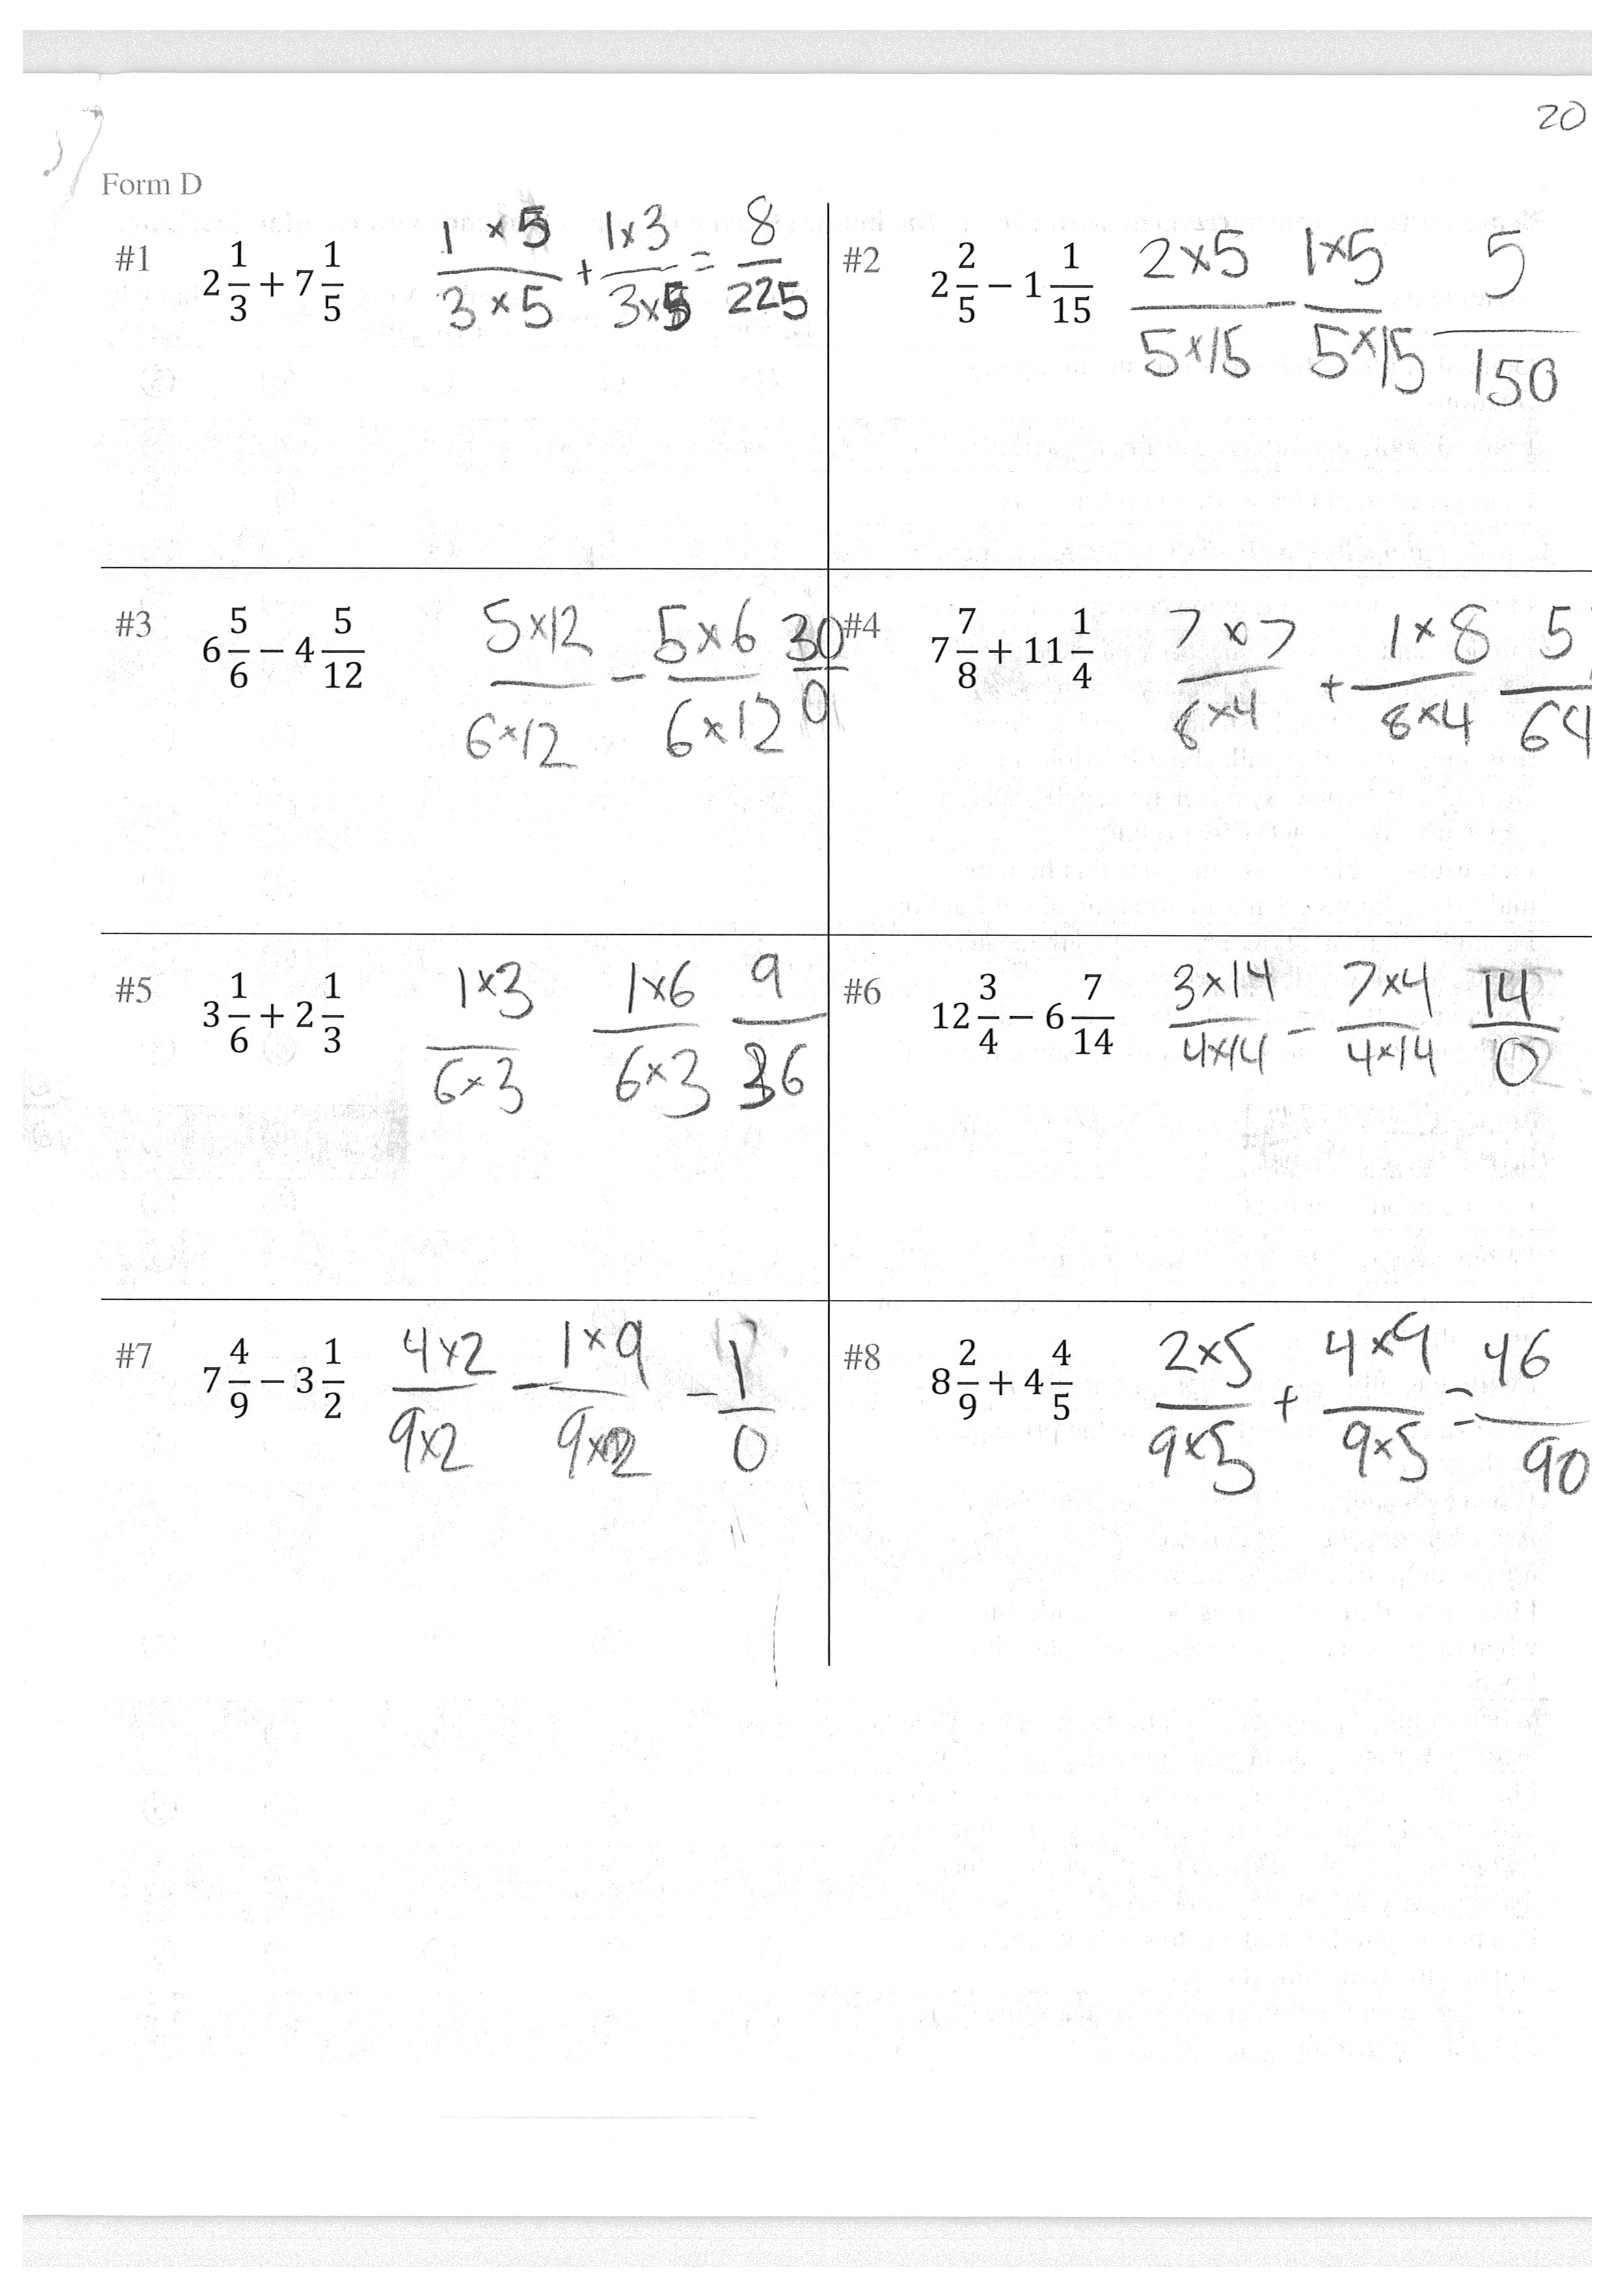 20
Form D
#1 2 1/3 + 7 1/5 (1 × 5)/(3 × 5) + (1×3)/(3×5) = 8/225
#2 2 2/5 − 1 1/15 (2×5)/(5×15) − (1×5)/(5×15) 5/150
#3 6 5/6 − 4 5/12 (5×12)/(6×12) − (5×6)/(6×12) 30/0
#4 7 7/8 + 11 1/4 (7×7)/(8×4) + (1×8)/(8×4) 5 /64
#5 3 1/6 + 2 1/3 (1×3)/(6×3) (1×6)/(6×3) 9/36
#6 12 3/4 − 6 7/14 (3×14)/(4×14) − (7×4)/(4×14) 14/0
#7 7 4/9 − 3 1/2 (4×2)/(9×2) − (1×9)/(9×2) − 1/0
#8 8 2/9 + 4 4/5 (2×5)/(9×5) + (4×9)/(9×5) = 46/90